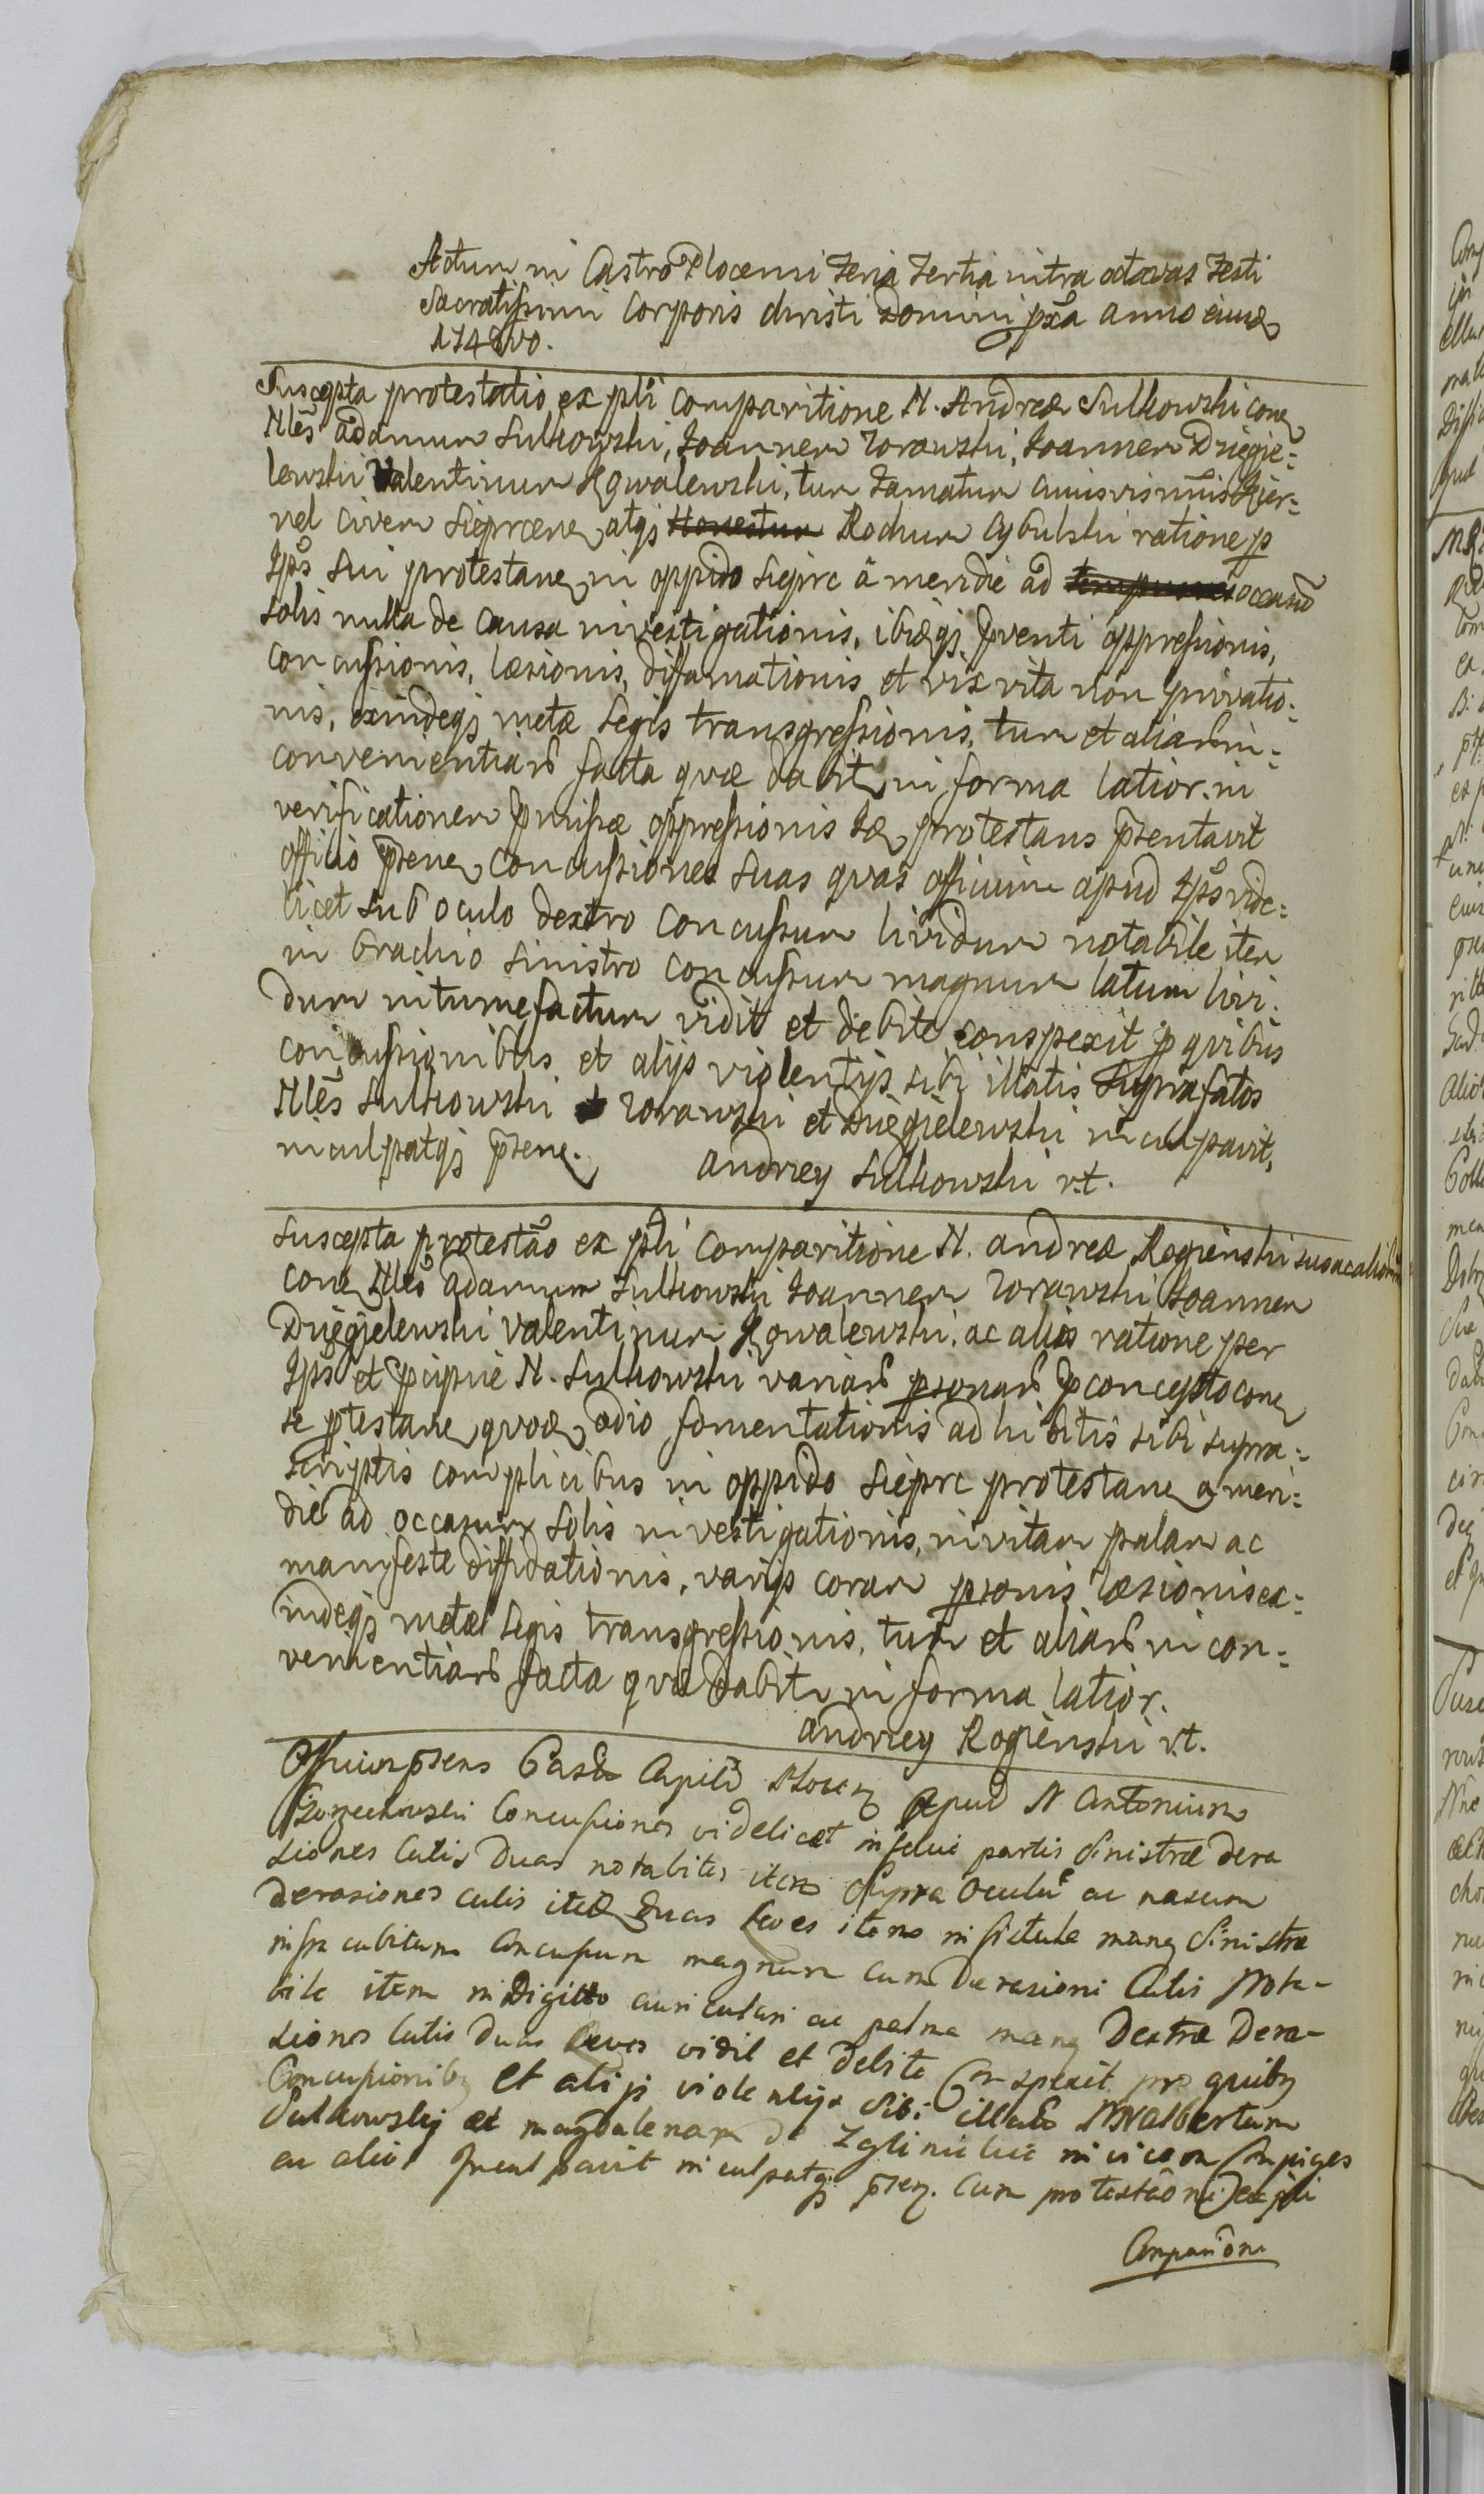 Actum in Castro Plocensi Feria Tertia intra octavas Festi
Sacratissimi Corporis Christi Domini pxã anno eiusq
1748vo.
Suscepta protestatio ex pti comparitione N. Andreæ Sulkowski cone
Nles adamum Sulkowski, Joannem Zorawski, Joannem Dziegie=
lewski Valentinum Kowalewski, tum Famatum cuiusvis nuis
vel civem Sieprcene atqj Honestum Rochum Cybulski ratione p
Ipõs sui protestane in oppido Sieprc â meridie ad occasũ
solis nulla de causa investigationis, ibiqj pventi oppressionis,
concussionis, læsionis, diffamationis et vix vita non privatio=
nis, exindeqj metæ legis transgressionis, tum et aliarũ in=
convenientiarũ facta quæ dabit in forma latior. in
verificationem pmissæ oppressionis protestans psentavit
officio psene concussiones suas quas officium apud Ipõs vide=
licet sub oculo dextro concussum lividum notabile item
in brachio sinistro concussum magnum latum livi=
dum intumefactum vidit et debite conspexit p quibus
concussionibus et alijs violentijs sibi illatis suprafatos
Nles Sulkowski Zorawski et Dziegielewski inculpavit,
inculpatqj psene. Andrzey Sulkowski r.t.
Suscepta protestão ex pti comparitione N. andreæ Rogienski suo ac aliorũ
cone Nles adamum Sulkowski Joannem Zorawski Joannem
Dziegielewski Valentinum Kowalewski, ac alios ratione per
Ipõs et pcipue N. Sulkowski variarũ psonarũ p concepto cone
se ptestane odio fomentationis adhibitis sibi supra=
scriptis complicibus in oppido Sieprc protestane a meri=
die ad occasum solis investigationis, in vitam palam ac
manifeste diffidationis, varijs coram psonis læsionis ex=
indeqj metæ legis transgressionis, tum et aliarũ incon=
venientiarũ facta quæ dabit in forma latior.
Andrzey Rogienski r.t.
Officium psens Capit Plocen Apud N Antonium
Concussiones videlicet in partis sinistræ dera
siones Cutis duas notabiles item supra oculũ ac nasum
derasiones cutis duas leves item in manq sinistræ
infra cubitum Concussum magnum cum derasioni Cutis Nota-
bile item in Digitto auriculari ac palma manq Dextræ Dera-
siones Cutis duas leves vidit et debite Conspexit pro quibq
Concussionibq et alijs violentijs sibi illatis NAlbertum
Sulkowski et magdalenam de invicem Conjuges
ac alios Inculpavit inculpatqj psenq. Cum protestãone ex pti
Comparitione